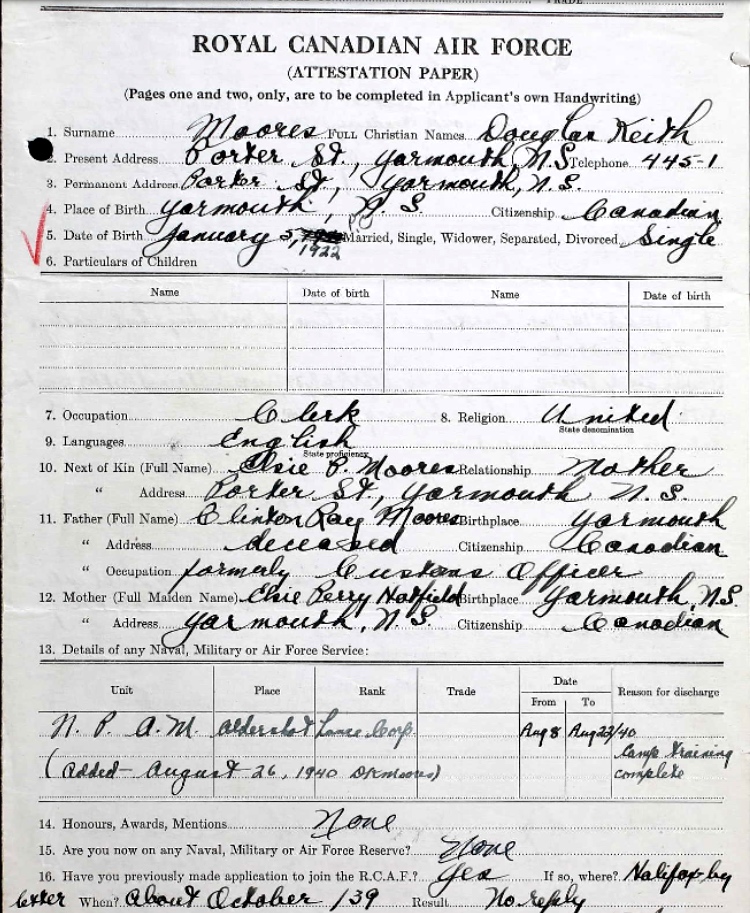 ROYAL CANADIAN AIR FORCE
(ATTESTATION PAPER)
(Pages one and two, only, are to be completed in Applicant's own Handwriting)
1. Surname Moores Full Christian Names Douglas Keith
2. Present Address Porter St., Yarmouth, N.S. Telephone 445-1
3. Permanent Address Porter St., Yarmouth, N.S.
4. Place of Birth Yarmouth, N.S. Citizenship Canadian
5. Date of Birth January 5, Married, Single, Widower, Separated, Divorced Single
1922
6. Particulars of Children
Name Date of birth Name Date of birth
7. Occupation Clerk 8. Religion United
State denomination
9. Languages English
State proficiency
10. Next of Kin (Full Name) Elsie P. Moores Relationship Mother
" Address Porter St., Yarmouth N.S.
11. Father (Full Name) Clinton Ray Moores Birthplace Yarmouth
" Address deceased Citizenship Canadian
" Occupation formerly Customs Officer
12. Mother (Full Maiden Name) Elsie Perry Hatfield Birthplace Yarmouth, N.S.
" Address Yarmouth, N.S. Citizenship Canadian
13. Details of any Naval, Military or Air Force Service:
Unit Place Rank Trade Date Reason for discharge
From To
N. P. A. M. Aldershot Lance Corp. Aug 8 Aug 22/40 Camp training
(Added - August 26, 1940 DKMoores) complete
14. Honours, Awards, Mentions None
15. Are you now on any Naval, Military or Air Force Reserve? None
16. Have you previously made application to join the R.C.A.F.? Yes If so, where? Halifax by
letter When? About October /39 Result No reply